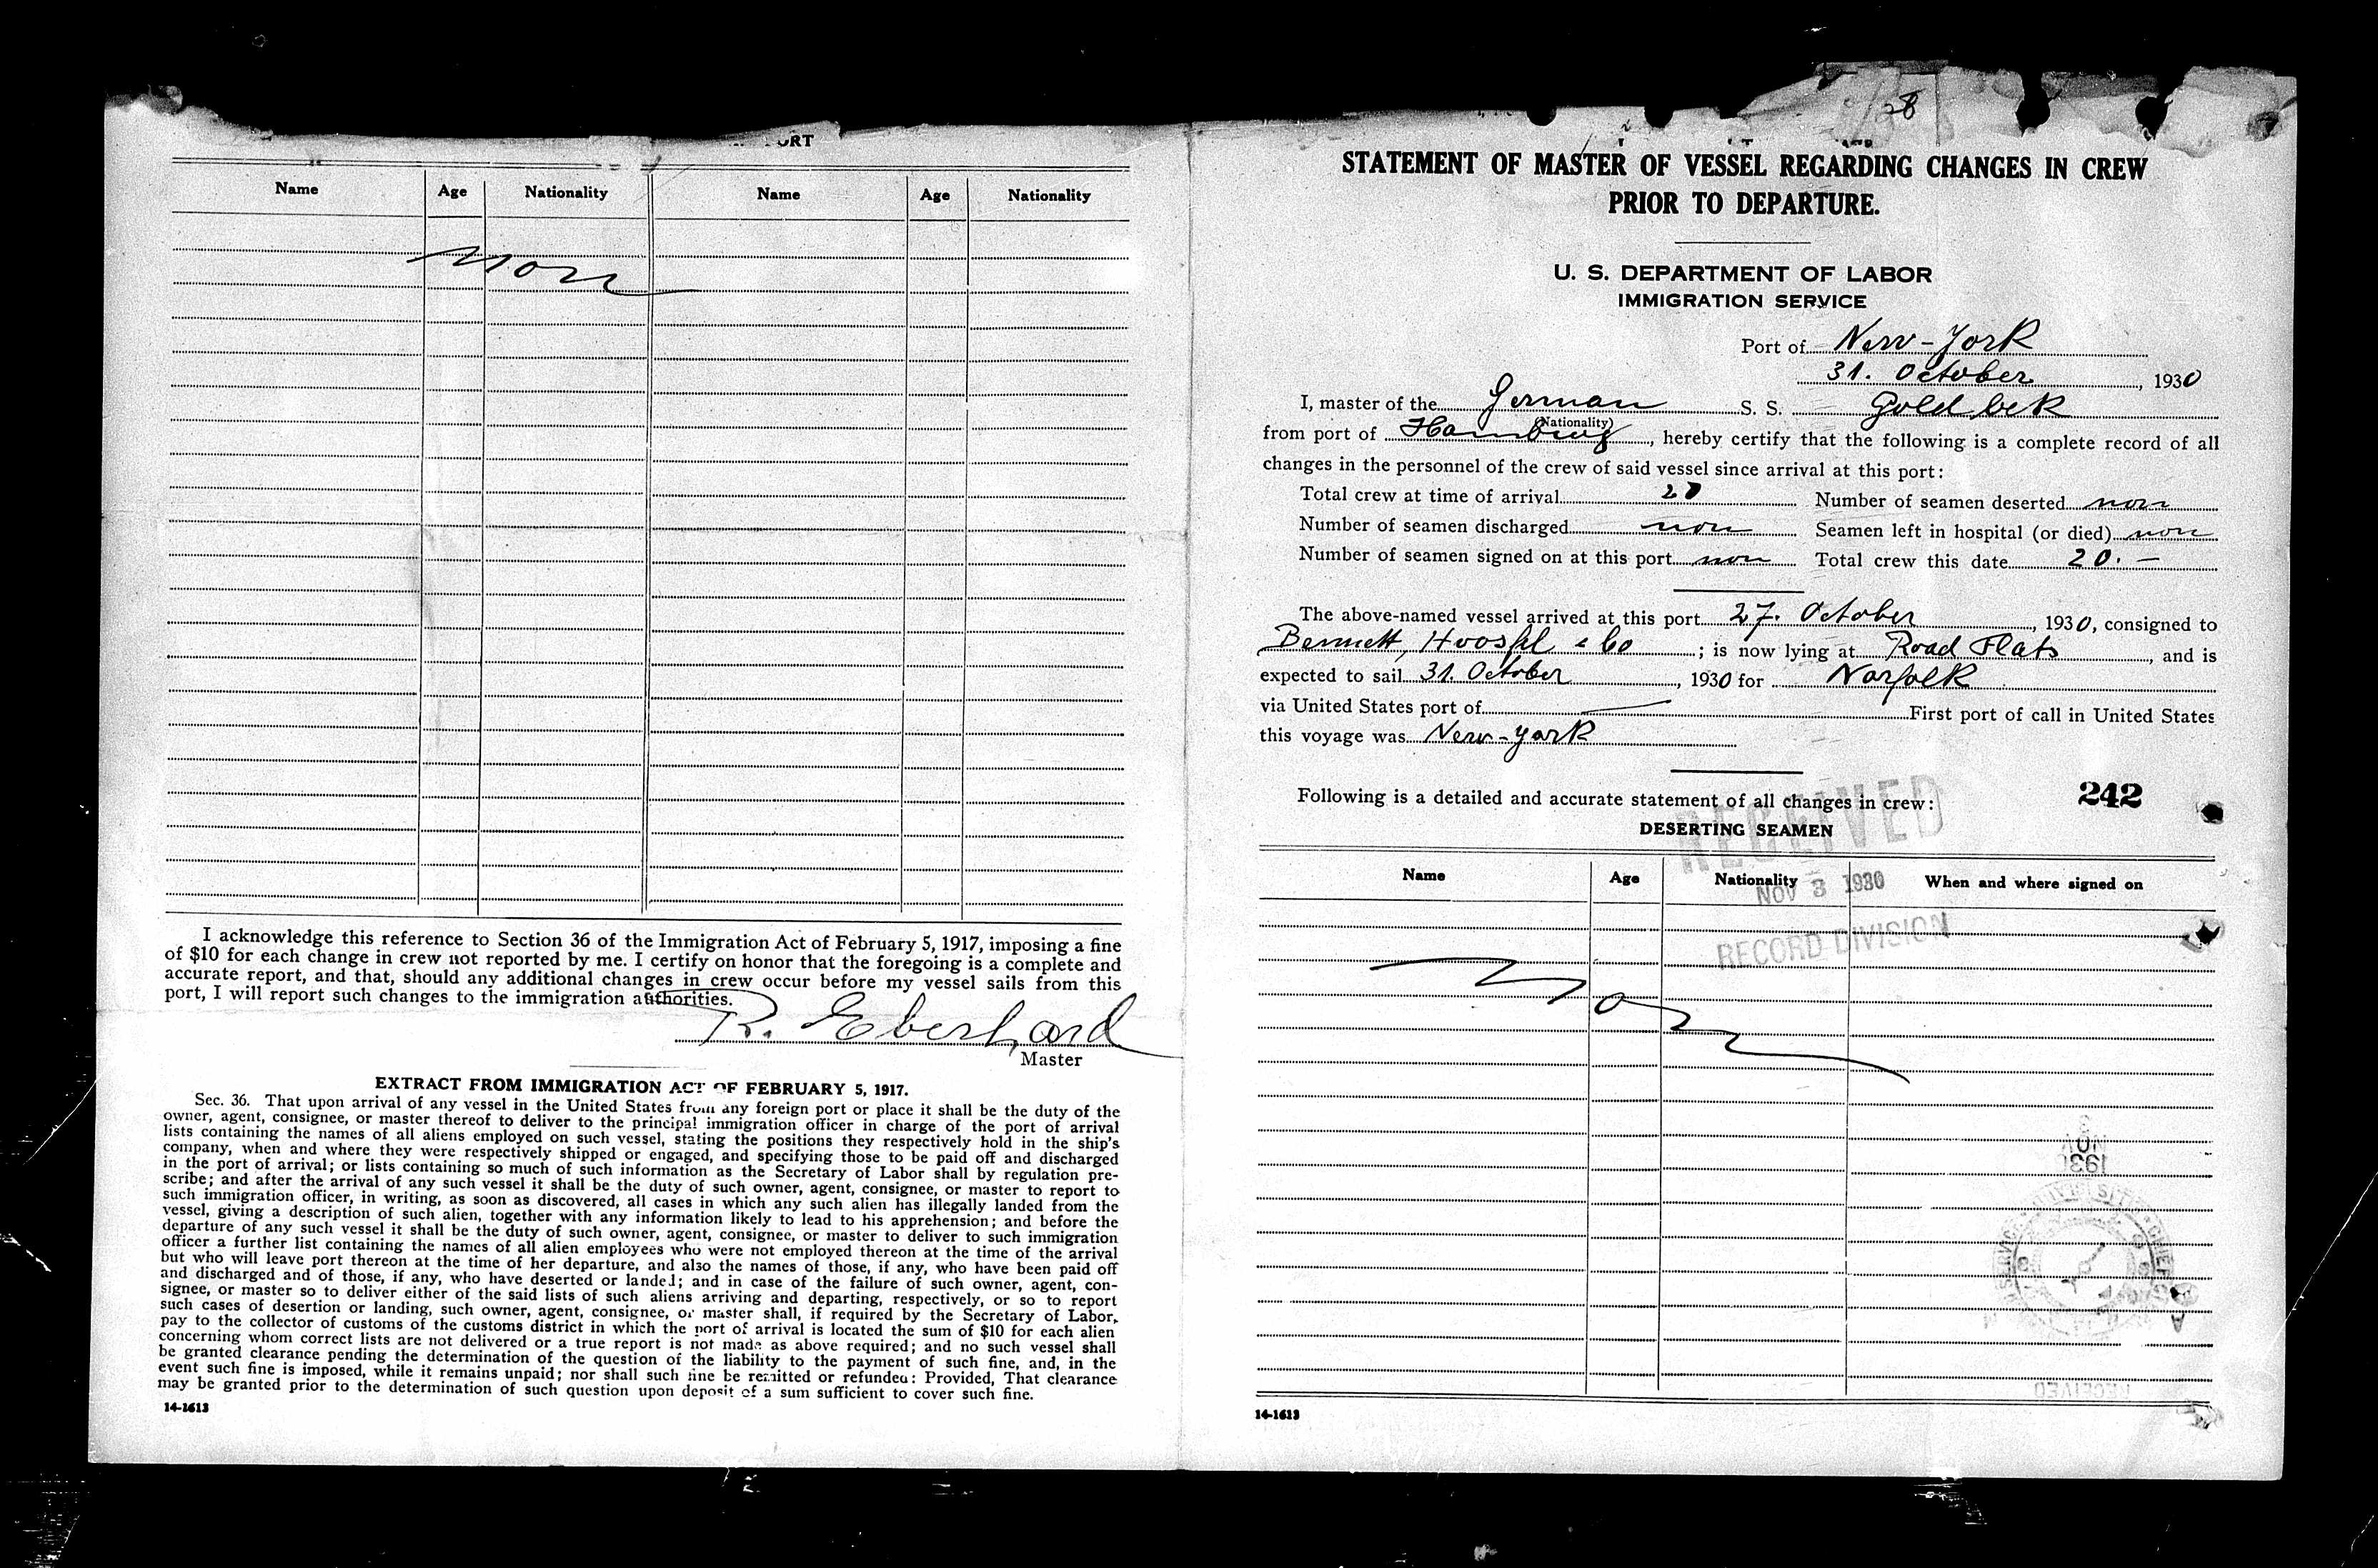 ORT
Name Age Nationality Name Age Nationality
non
I acknowledge this reference to Section 36 of the Immigration Act of February 5, 1917, imposing a fine
of $10 for each change in crew not reported by me. I certify on honor that the foregoing is a complete and
accurate report, and that, should any additional changes in crew occur before my vessel sails from this
port, I will report such changes to the immigration authorities.
R. Eberhard
Master
EXTRACT FROM IMMIGRATION ACT OF FEBRUARY 5, 1917.
Sec. 36. That upon arrival of any vessel in the United States from any foreign port or place it shall be the duty of the
owner, agent, consignee, or master thereof to deliver to the principal immigration officer in charge of the port of arrival
lists containing the names of all aliens employed on such vessel, stating the positions they respectively hold in the ship's
company, when and where they were respectively shipped or engaged, and specifying those to be paid off and discharged
in the port of arrival; or lists containing so much of such information as the Secretary of Labor shall by regulation pre-
scribe; and after the arrival of any such vessel it shall be the duty of such owner, agent, consignee, or master to report to
such immigration officer, in writing, as soon as discovered, all cases in which any such alien has illegally landed from the
vessel, giving a description of such alien, together with any information likely to lead to his apprehension; and before the
departure of any such vessel it shall be the duty of such owner, agent, consignee, or master to deliver to such immigration
officer a further list containing the names of all alien employees who were not employed thereon at the time of the arrival
but who will leave port thereon at the time of her departure, and also the names of those, if any, who have been paid off
and discharged and of those, if any, who have deserted or landed; and in case of the failure of such owner, agent, con-
signee, or master so to deliver either of the said lists of such aliens arriving and departing, respectively, or so to report
such cases of desertion or landing, such owner, agent, consignee, or master shall, if required by the Secretary of Labor,
pay to the collector of customs of the customs district in which the port of arrival is located the sum of $10 for each alien
concerning whom correct lists are not delivered or a true report is not made as above required; and no such vessel shall
be granted clearance pending the determination of the question of the liability to the payment of such fine, and, in the
event such fine is imposed, while it remains unpaid; nor shall such fine be remitted or refunded: Provided, That clearance
may be granted prior to the determination of such question upon deposit of a sum sufficient to cover such fine.
14-1613
28
STATEMENT OF MASTER OF VESSEL REGARDING CHANGES IN CREW
PRIOR TO DEPARTURE.
U. S. DEPARTMENT OF LABOR
IMMIGRATION SERVICE
Port of New-York
31. October, 1930
I, master of the German S. S. Goldbek
(Nationality)
from port of Hamburg, hereby certify that the following is a complete record of all
changes in the personnel of the crew of said vessel since arrival at this port:
Total crew at time of arrival 20 Number of seamen deserted non
Number of seamen discharged non Seamen left in hospital (or died) non
Number of seamen signed on at this port non Total crew this date 20. —
The above-named vessel arrived at this port 27. October, 1930, consigned to
Bennett, & Co; is now lying at Road Flats, and is
expected to sail 31. October, 1930 for Norfolk
via United States port of — First port of call in United States
this voyage was New-York
242
Following is a detailed and accurate statement of all changes in crew:
DESERTING SEAMEN
RECEIVED
Name Age Nationality When and where signed on
NOV 3 1930
RECORD DIVISION
non
3
NOV
1930
RECEIVED
14-1613